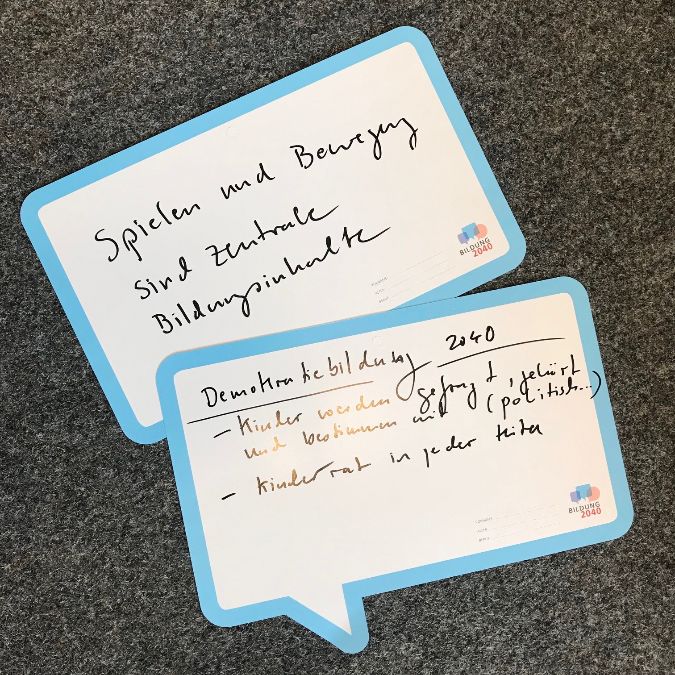 Spielen und Bewegung
sind zentrale
Bildungsinhalte
BILDUNG
2040
Demokratiebildung 2040
- Kinder werden gefragt, gehört
und bestimmen mit (politisch...)
- Kinderrat in jeder Kita
BILDUNG
2040